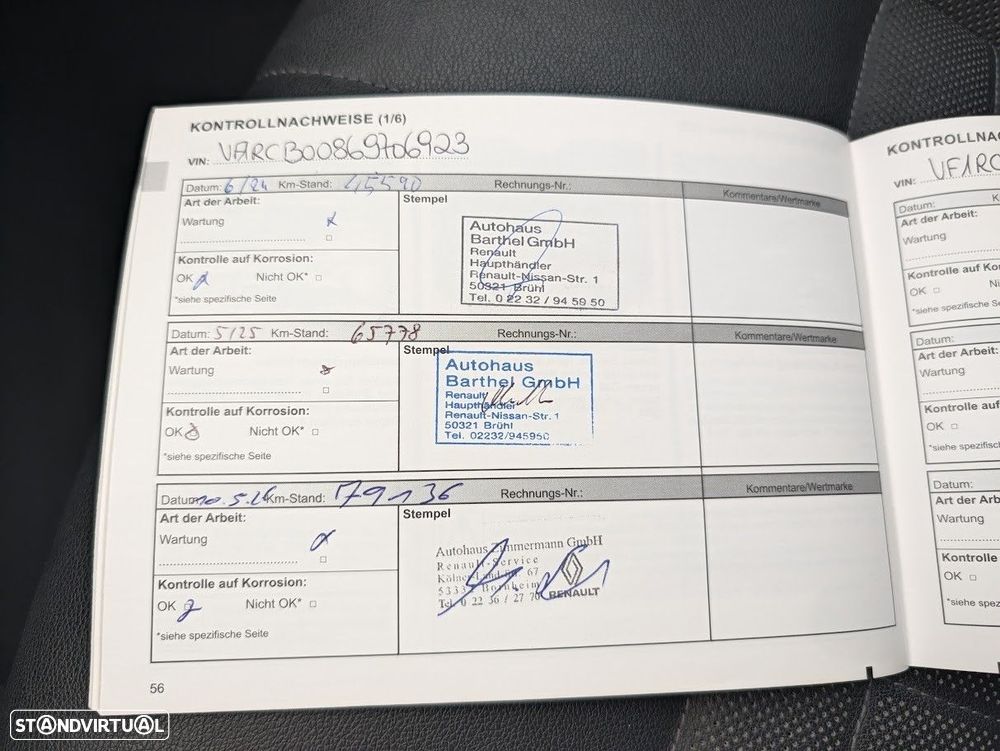 KONTROLLNACHWEISE (1/6)
VIN: VARCB00869706923
Datum: 6/24 Km-Stand: 45590 Rechnungs-Nr.: Kommentare/Wertmarke
Art der Arbeit: Stempel
Wartung
Kontrolle auf Korrosion:
OK Nicht OK*
*siehe spezifische Seite
Autohaus
Barthel GmbH
Renault
Haupthändler
Renault-Nissan-Str. 1
50321 Brühl
Tel. 0 22 32 / 94 59 50
Datum: 5/25 Km-Stand: 65778 Rechnungs-Nr.: Kommentare/Wertmarke
Art der Arbeit: Stempel
Wartung
Kontrolle auf Korrosion:
OK Nicht OK*
*siehe spezifische Seite
Autohaus
Barthel GmbH
Renault
Haupthändler
Renault-Nissan-Str. 1
50321 Brühl
Tel. 02232/945950
Datum: Km-Stand: 79136 Rechnungs-Nr.: Kommentare/Wertmarke
Art der Arbeit: Stempel
Wartung
Kontrolle auf Korrosion:
OK Nicht OK*
*siehe spezifische Seite
Autohaus Zimmermann GmbH
Renault-Service
67
Bornheim
Tel. 0 22 36 / 27 70
RENAULT
56
KONTROLLNACHW
VIN: VF1RC
Datum:
Art der Arbeit:
Wartung
Kontrolle auf Kor
OK
*siehe spezifische
Datum:
Art der Arbeit:
Wartung
Kontrolle auf Ko
OK
*siehe spezifisch
Datum:
Art der Arbeit
Wartung
Kontrolle
OK
*siehe spez
STANDVIRTUAL